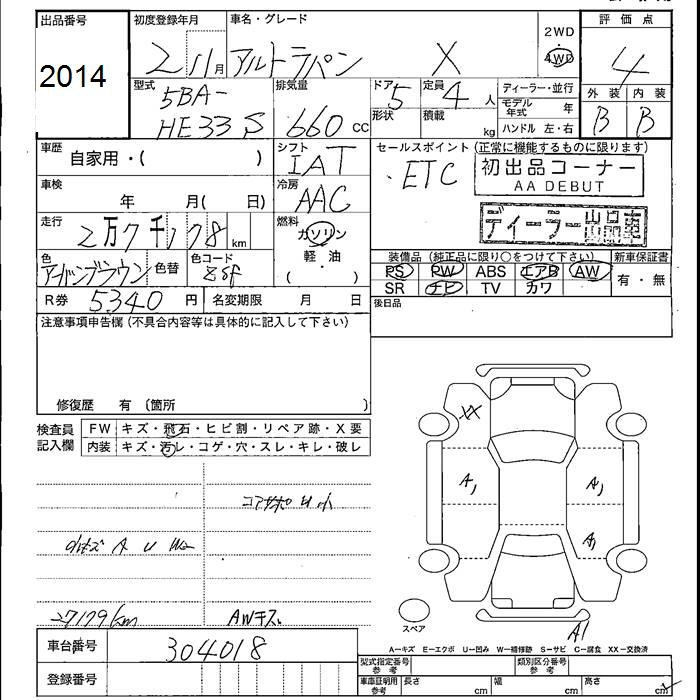 出品番号
2014
初度登録年月
2 11月
車名・グレード
アルトラパン X
2WD
4WD
評価点
4
型式
5BA-
HE33S
排気量
660 cc
ドア
5
形状
定員
4 人
積載
kg
ディーラー・並行
モデル年式 年
ハンドル 左・右
外装 内装
B B
車歴
自家用・( )
シフト
IAT
セールスポイント (正常に機能するものに限ります)
ETC
初出品コーナー
AA DEBUT
ディーラー出品車
車検
年 月( 日)
冷房
AAC
走行
2万7千178 km
燃料
ガソリン
軽・油
( )
色
アーバンブラウン
色替
色コード
装備品 (純正品に限り○をつけて下さい)
新車保証書
PS PW ABS エアB AW
有・無
SR ナビ TV カワ
R券 5340 円
名変期限 月 日
後日品
注意事項申告欄(不具合内容等は具体的に記入して下さい)
修復歴 有 (箇所 )
検査員
記入欄
FW キズ・飛石・ヒビ割・リペア跡・X要
内装 キズ・汚レ・コゲ・穴・スレ・キレ・破レ
XX
A1
A1
A1
コアサポ U 小
A U
27179km
AWキズ
スペア
A1
車台番号
304018
登録番号
A−キズ E−エクボ U−凹み W−補修跡 S−サビ C−腐食 XX−交換済
型式指定番号
参考
類別区分番号
参考
車庫証明用
参考
長さ cm
幅 cm
高さ cm